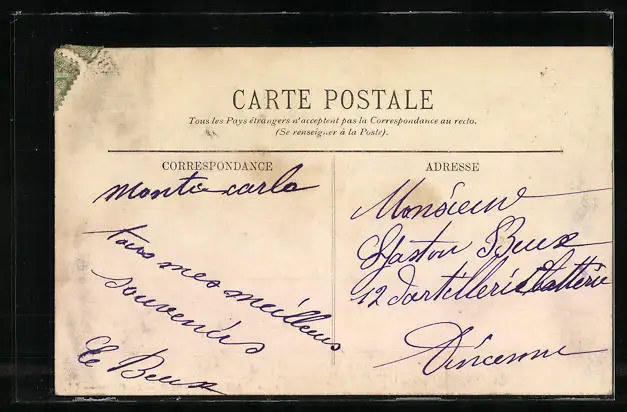 CARTE POSTALE
Tous les Pays étrangers n'acceptent pas la Correspondance au recto.
(Se renseigner à la Poste).
CORRESPONDANCE
Monte carlo
tous mes meilleurs
souvenirs
Beux
ADRESSE
Monsieur
Gaston Beux
12 d'artillerie batterie
Vincenne